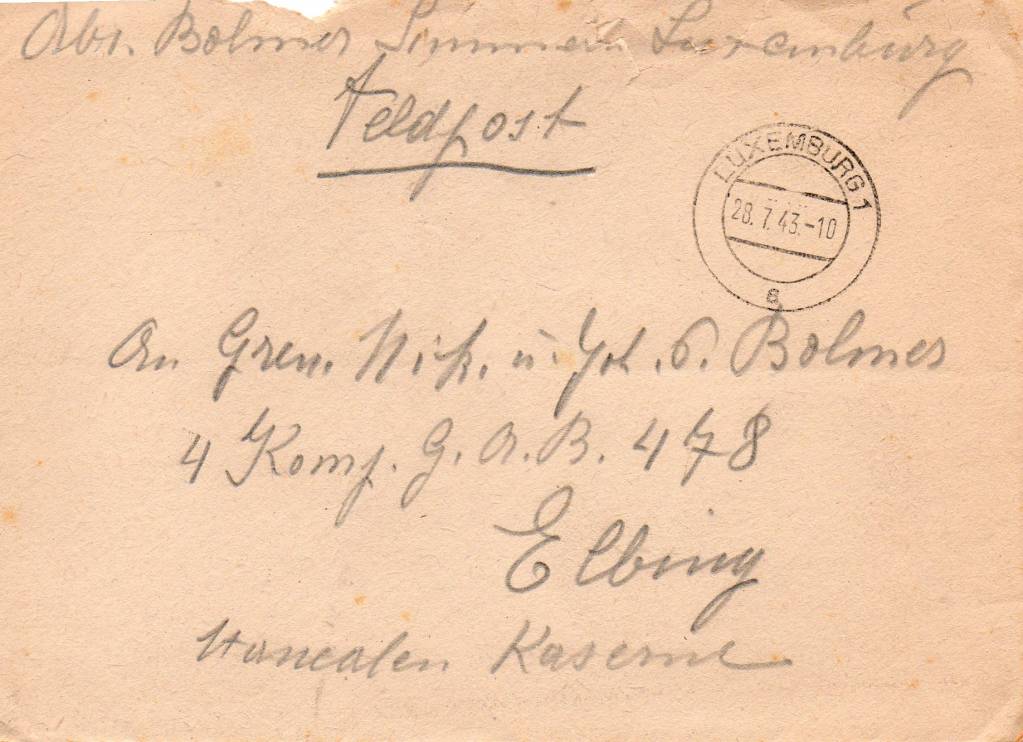 Abs. Bolmer Simmern Luxemburg
Feldpost
LUXEMBURG 1
28.7.43.-10
a
An Gren. Nik. u. Joh. P. Bolmer
4 Komp. G. A. B. 478
Elbing
Kaserne